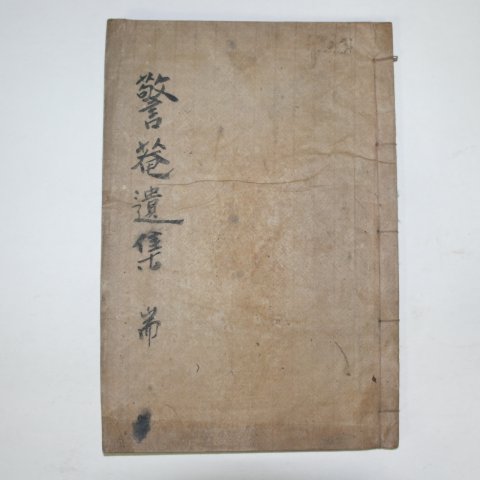 警菴遺集 耑